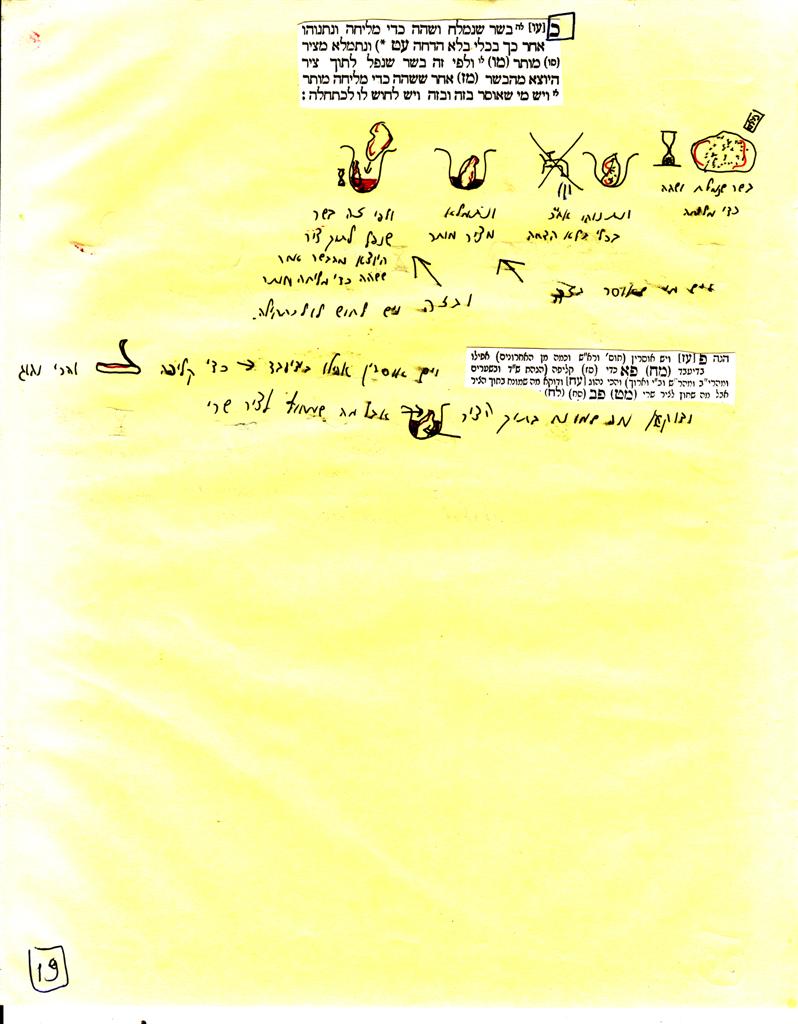 כ [עו] לה בשר שנמלח ושהה כדי מליחה ונתנוהו
אחר כך בכלי בלא הדחה עט *) ונתמלא מציר
(סו) מותר (מו) לו ולפי זה בשר שנפל לתוך ציר
היוצא מהבשר (מז) אחר ששהה כדי מליחה מותר
לז ויש מי שאוסר בזה ובזה ויש לחוש לו לכתחלה:
בשר שנמלח ושהה
כדי מליחה
ונתנוהו אח"כ
בכלי בלא הדחה
ונתמלא
מציר מותר
ולפי זה בשר
שנפל לתוך ציר
היוצא מהבשר אחר
ששהה כדי מליחה מותר
ויש מי שאוסר בזה
ובזה ויש לחוש לו לכתחילה.
הגה פ [עז] ויש אוסרין (תוס' ורא"ש וכמה מן האחרונים) אפילו
בדיעבד (מח) פא כדי (סז) קליפה (הגהת ש"ד ובשערים
ומהרי"ב ומהר"ש וב"י וארוך) והכי נהוג [עח] ודוקא מה שמונח בתוך הציר
אבל מה שחוץ לציר שרי (מט) פב (סח) (לח)
ויש אוסרין אפילו בדיעבד כדי קליפה והכי נהוג
ודוקא מה שמונח בתוך הציר אבל מה שחוץ לציר שרי
19